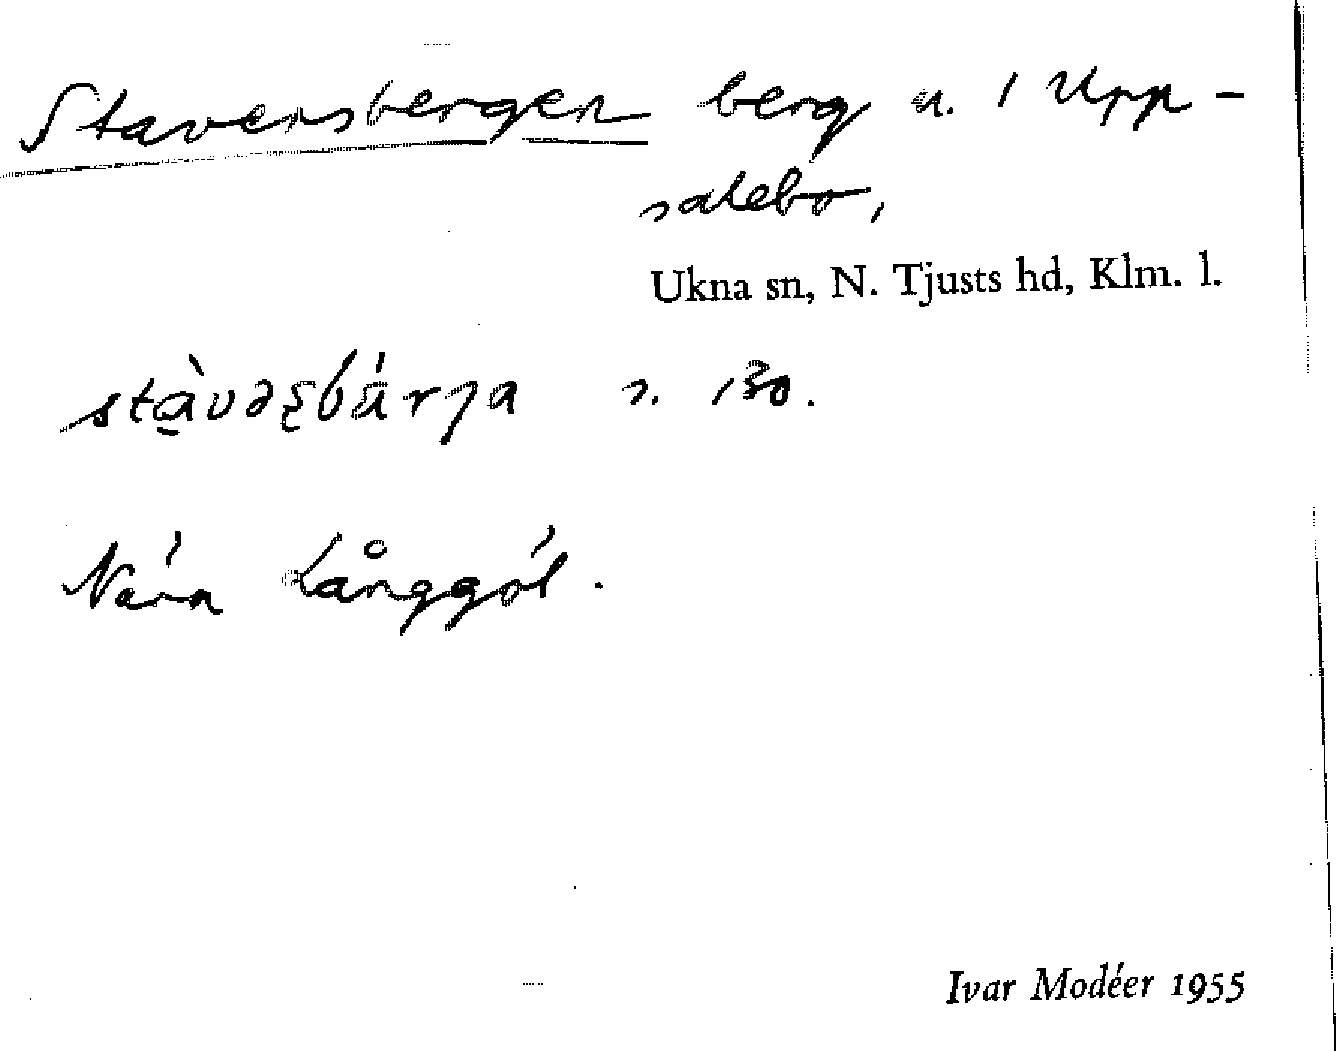 Staversbergen berg u. 1 Upp-
salebo,
Ukna sn, N. Tjusts hd, Klm. l.
s. 130.
Nära Långgöl.
Ivar Modéer 1955